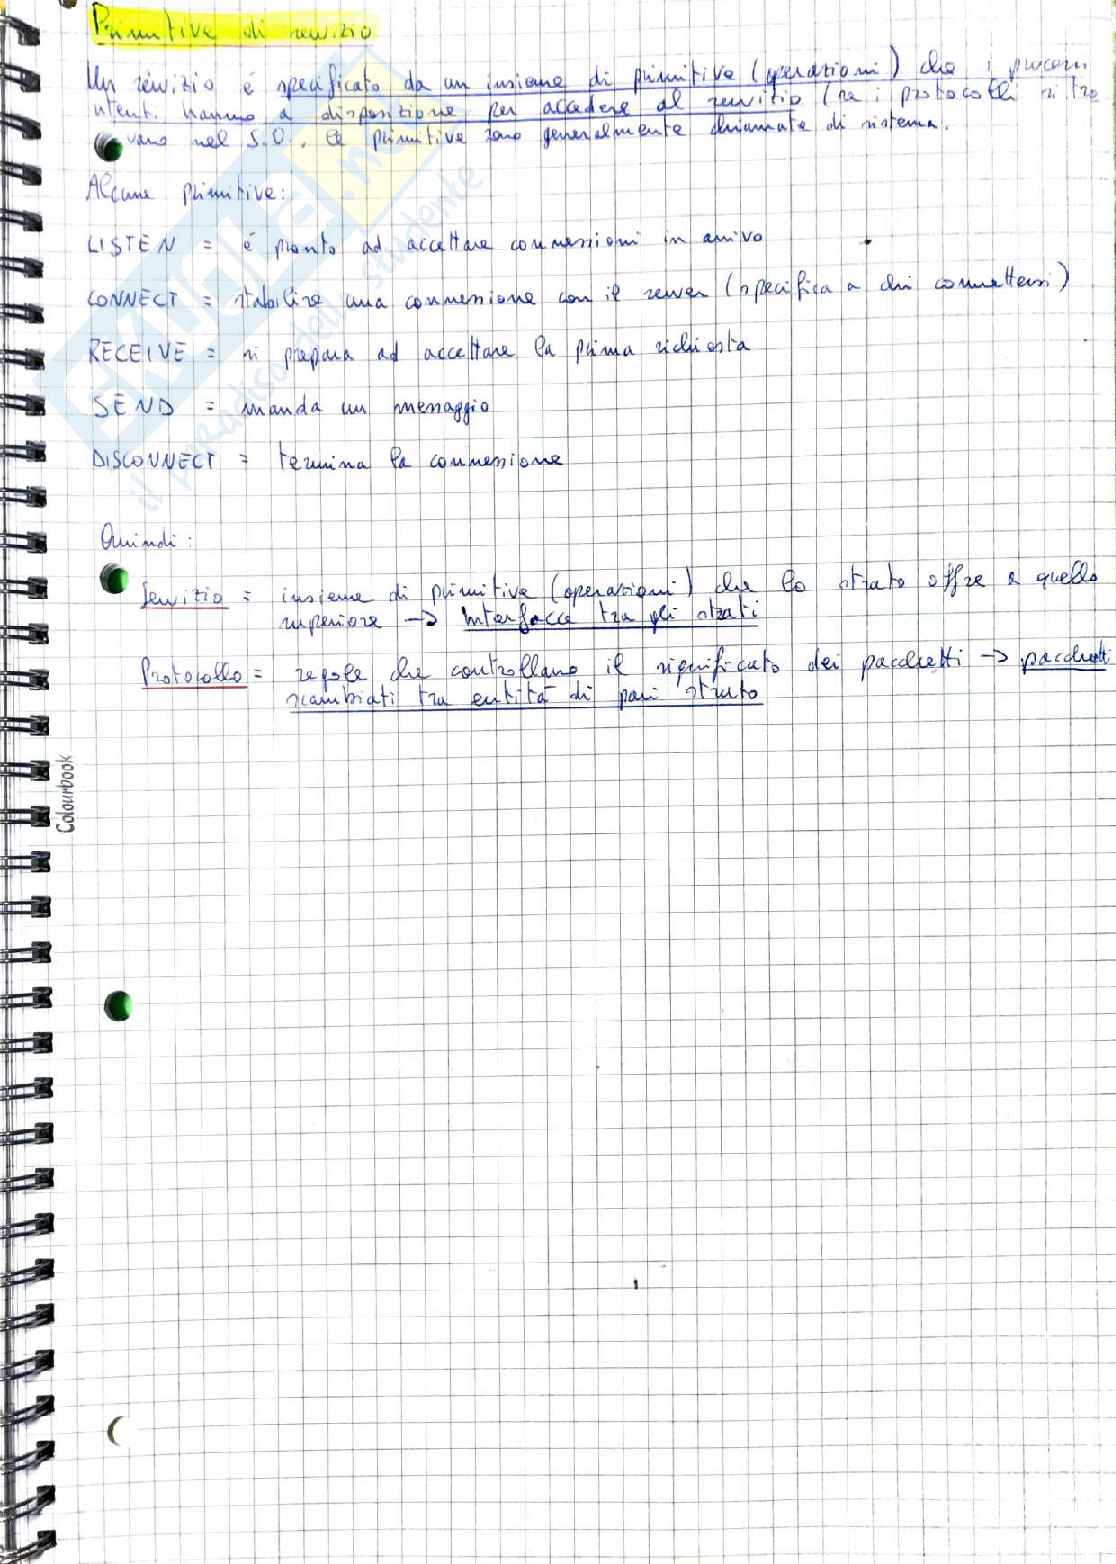 Primitive di servizio
Un servizio é specificato da un insieme di primitive (operazioni) che i processi
utenti hanno a disposizione per accedere al servizio (se i protocolli si tro
vano nel S.O. le primitive sono generalmente chiamate di sistema.
Alcune primitive:
LISTEN = é pronto ad accettare connessioni in arrivo
CONNECT = stabilire una connessione con il server (specifica a chi connettersi)
RECEIVE = si prepara ad accettare la prima richiesta
SEND = manda un messaggio
DISCONNECT = termina la connessione
Quindi:
Servizio = insieme di primitive (operazioni) che lo strato offre a quello
superiore -> Interfacce tra gli strati
Protocollo = regole che controllano il significato dei pacchetti -> pacchetti
scambiati tra entità di pari strato
Colourbook